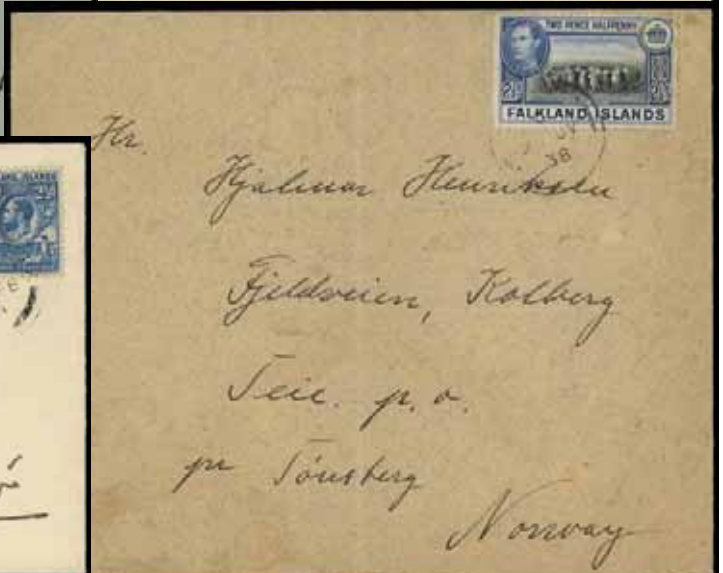 TWO PENCE HALFPENNY
FALKLAND ISLANDS
38
Hr.
Hjalmar Henriksen
Fjeldveien, Kolberg
Teie. p.o.
pr Tönsberg
Norway